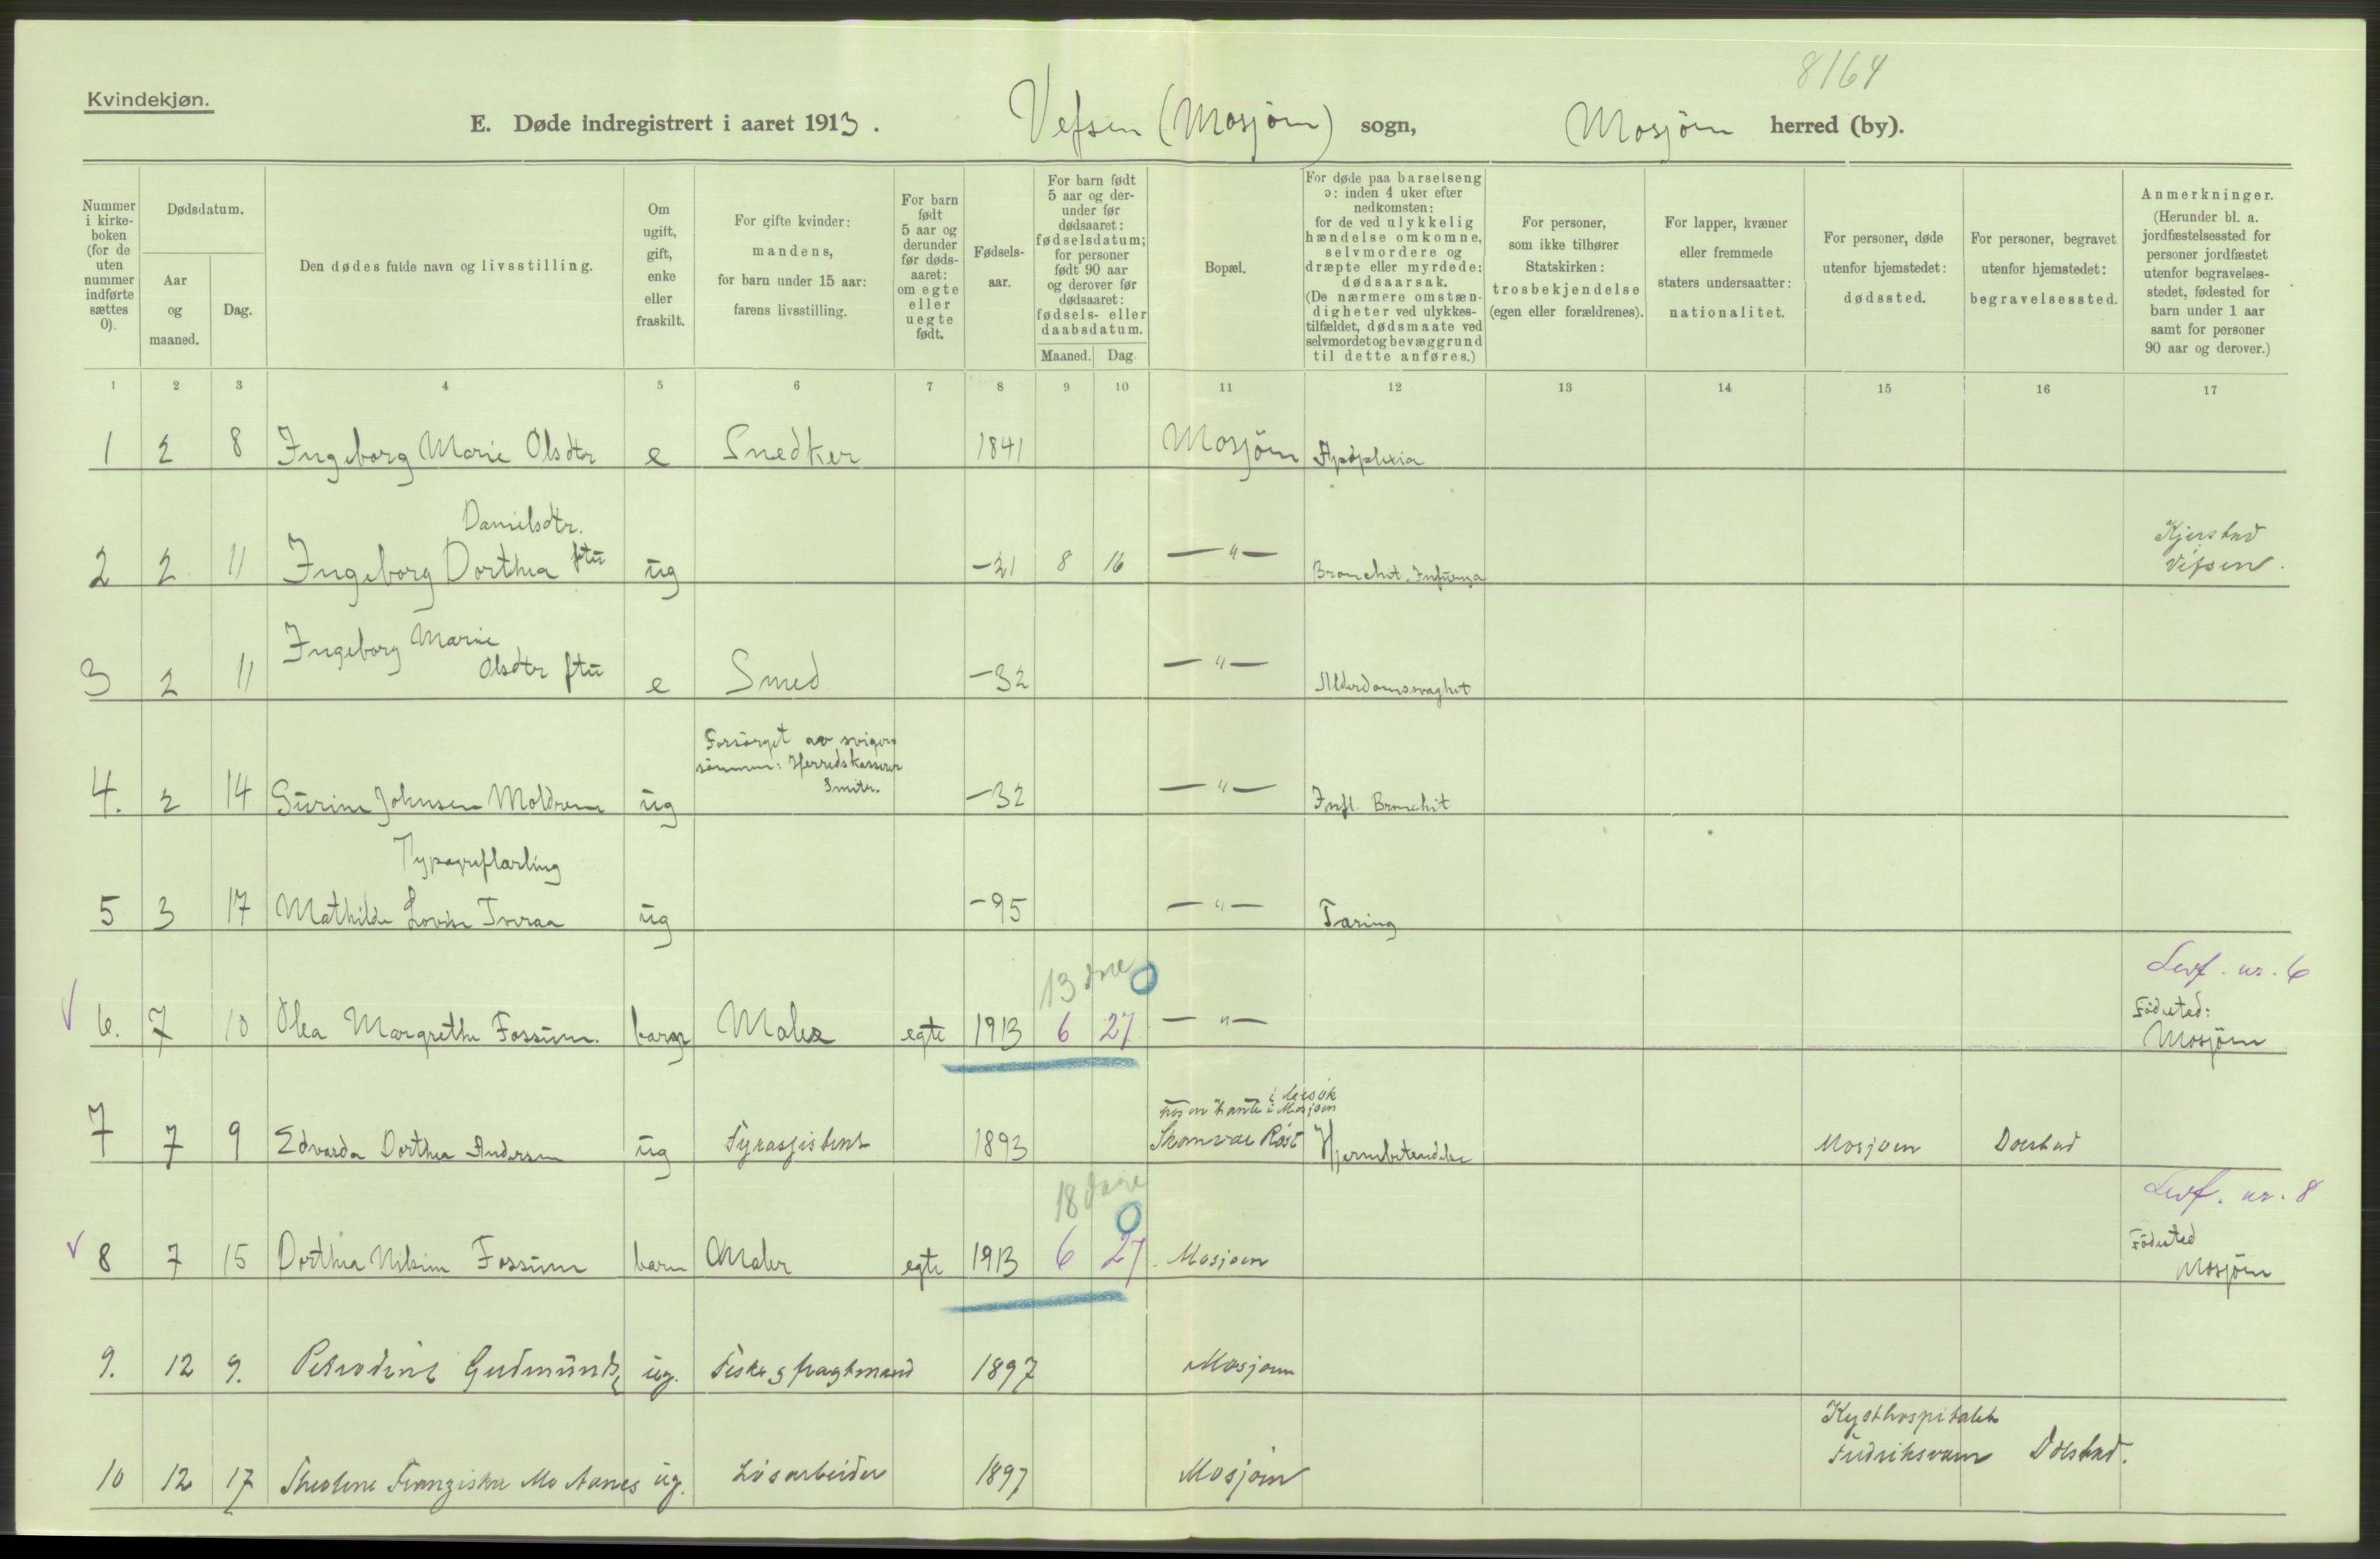 8164
Kvindekjøn.
E. Døde indregistrert i aaret 1913. Vefsen (Mosjöen) sogn, Mosjöen herred (by).
Nummer i kirke-boken (for de uten nummer indførte sættes 0).
Dødsdatum.
Aar og maaned.
Dag.
Den dødes fulde navn og livsstilling.
Om ugift, gift, enke eller fraskilt.
For gifte kvinder: mandens, for barn under 15 aar: farens livsstilling.
For barn født 5 aar og derunder før døds-aaret: om egte eller uegte født.
Fødsels-aar.
For barn født 5 aar og der-under før dødsaaret: fødselsdatum; for personer født 90 aar og derover før dødsaaret: fødsels- eller daabsdatum.
Maaned. Dag
Bopæl.
For døde paa barselseng ɔ: inden 4 uker efter nedkomsten: for de ved ulykkelig hændelse omkomne, selvmordere og dræpte eller myrdede: dødsaarsak. (De nærmere omstæn-digheter ved ulykkes-tilfældet, dødsmaate ved selvmordet og bevæggrund til dette anføres.)
For personer, som ikke tilhører Statskirken: trosbekjendelse (egen eller forældrenes).
For lapper, kvæner eller fremmede staters undersaatter: nationalitet.
For personer, døde utenfor hjemstedet: dødssted.
For personer, begravet utenfor hjemstedet: begravelsessted.
Anmerkninger. (Herunder bl. a. jordfæstelsessted for personer jordfæstet utenfor begravelses-stedet, fødested for barn under 1 aar samt for personer 90 aar og derover.)
1 2 3 4 5 6 7 8 9 10 11 12 13 14 15 16 17
1 2 8 Ingeborg Marie Olsdtr e Snedker 1841 Mosjöen Apoplexia
Danielsdtr.
2 2 11 Ingeborg Dorthea ftu ug -21 8 16 —"— Bronchit. Influenza Kjerstad Vefsen.
Ingeborg Marie
3 2 11 Olsdtr ftu e Smed -32 —"— Alderdomssvaghet
Forsörget av svigers
sönnen: Herredskasserer
Smiter.
4. 2 14 Gurine Johnsen Moldrem ug -32 —"— Infl. Bronchit
Typograflærling
5 3 17 Mathilde Lovise Tveraa ug -95 —"— Tæring
Levf. nr. 6
13 dage 0
√ 6. 7 10 Olea Margrethe Fossum. barn Maler egte 1913 6 27 —"— Födested: Mosjöen
i besök
hos en tante i Mosjøen
7 7 9 Edvarda Dorthea Andersen ug Fyrassistent 1893 Skomvær Röst Hjernebetændelse Mosjøen Dolstad
Levf. nr. 8
18 dage 0
√ 8 7 15 Dorthea Nilsine Fossum barn Maler egte 1913 6 27 Mosjøen Födested Mosjöen
9. 12 9. ug. Fisker & fragtmand 1897 Mosjøen
Kysthospitalet
10 12 17 Theoline Franziska Mo Aanes ug. Lösarbeider 1897 Mosjöen Fredriksværn Dolstad.